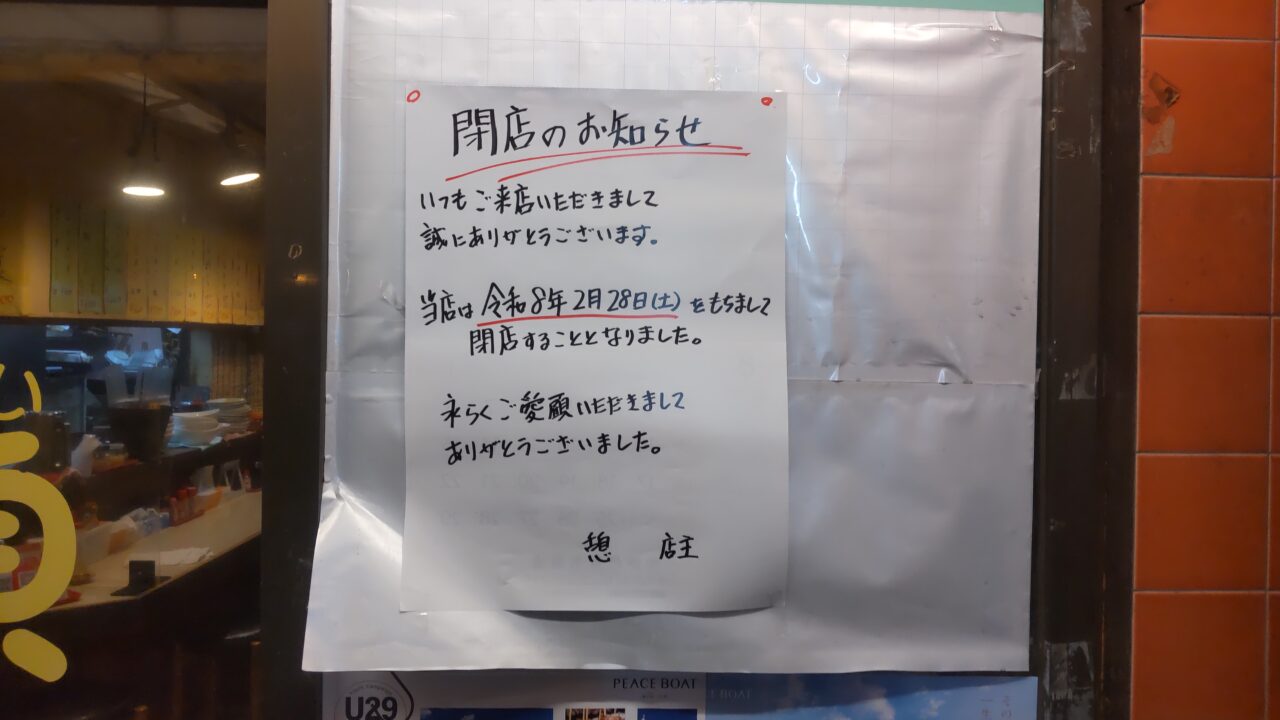 閉店のお知らせ
いつもご来店いただきまして
誠にありがとうございます。
当店は令和8年2月28日(土)をもちまして
閉店することとなりました。
永らくご愛顧いただきまして
ありがとうございました。
憩 店主
PEACE BOAT
U29